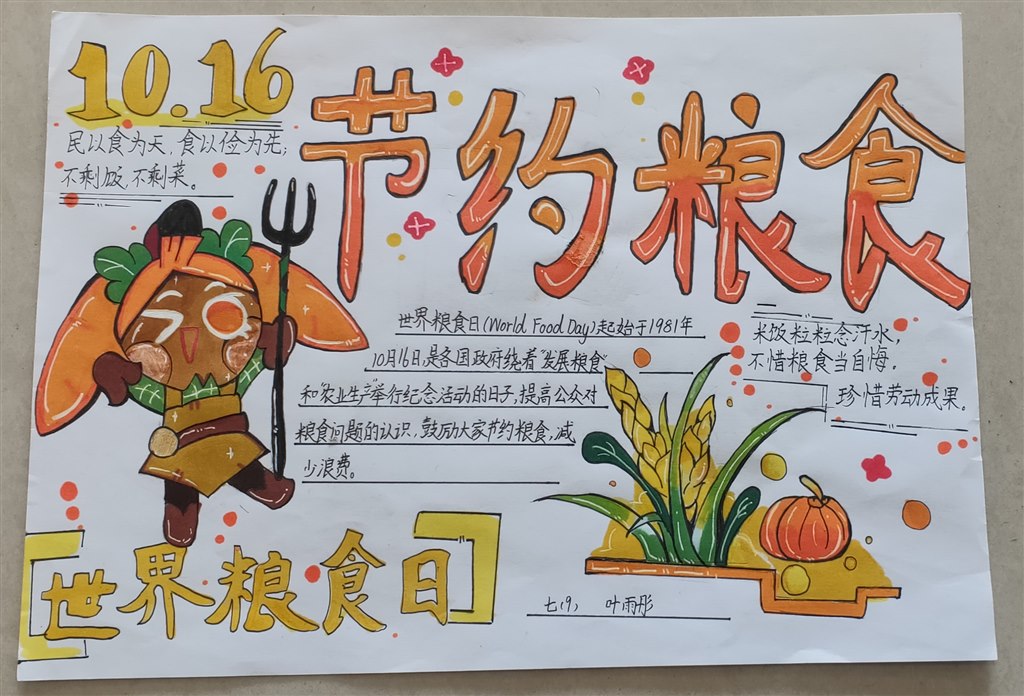 10.16
民以食为天,食以俭为先;
不剩饭,不剩菜。
节约粮食
世界粮食日(World Food Day)起始于1981年
10月16日,是各国政府绕着"发展粮食
和"农业生产"举行纪念活动的日子,提高公众对
粮食问题的认识,鼓励大家节约粮食,减
少浪费。
米饭粒粒念汗水,
不惜粮食当自悔.
珍惜劳动成果。
世界粮食日
七(9) 叶雨彤